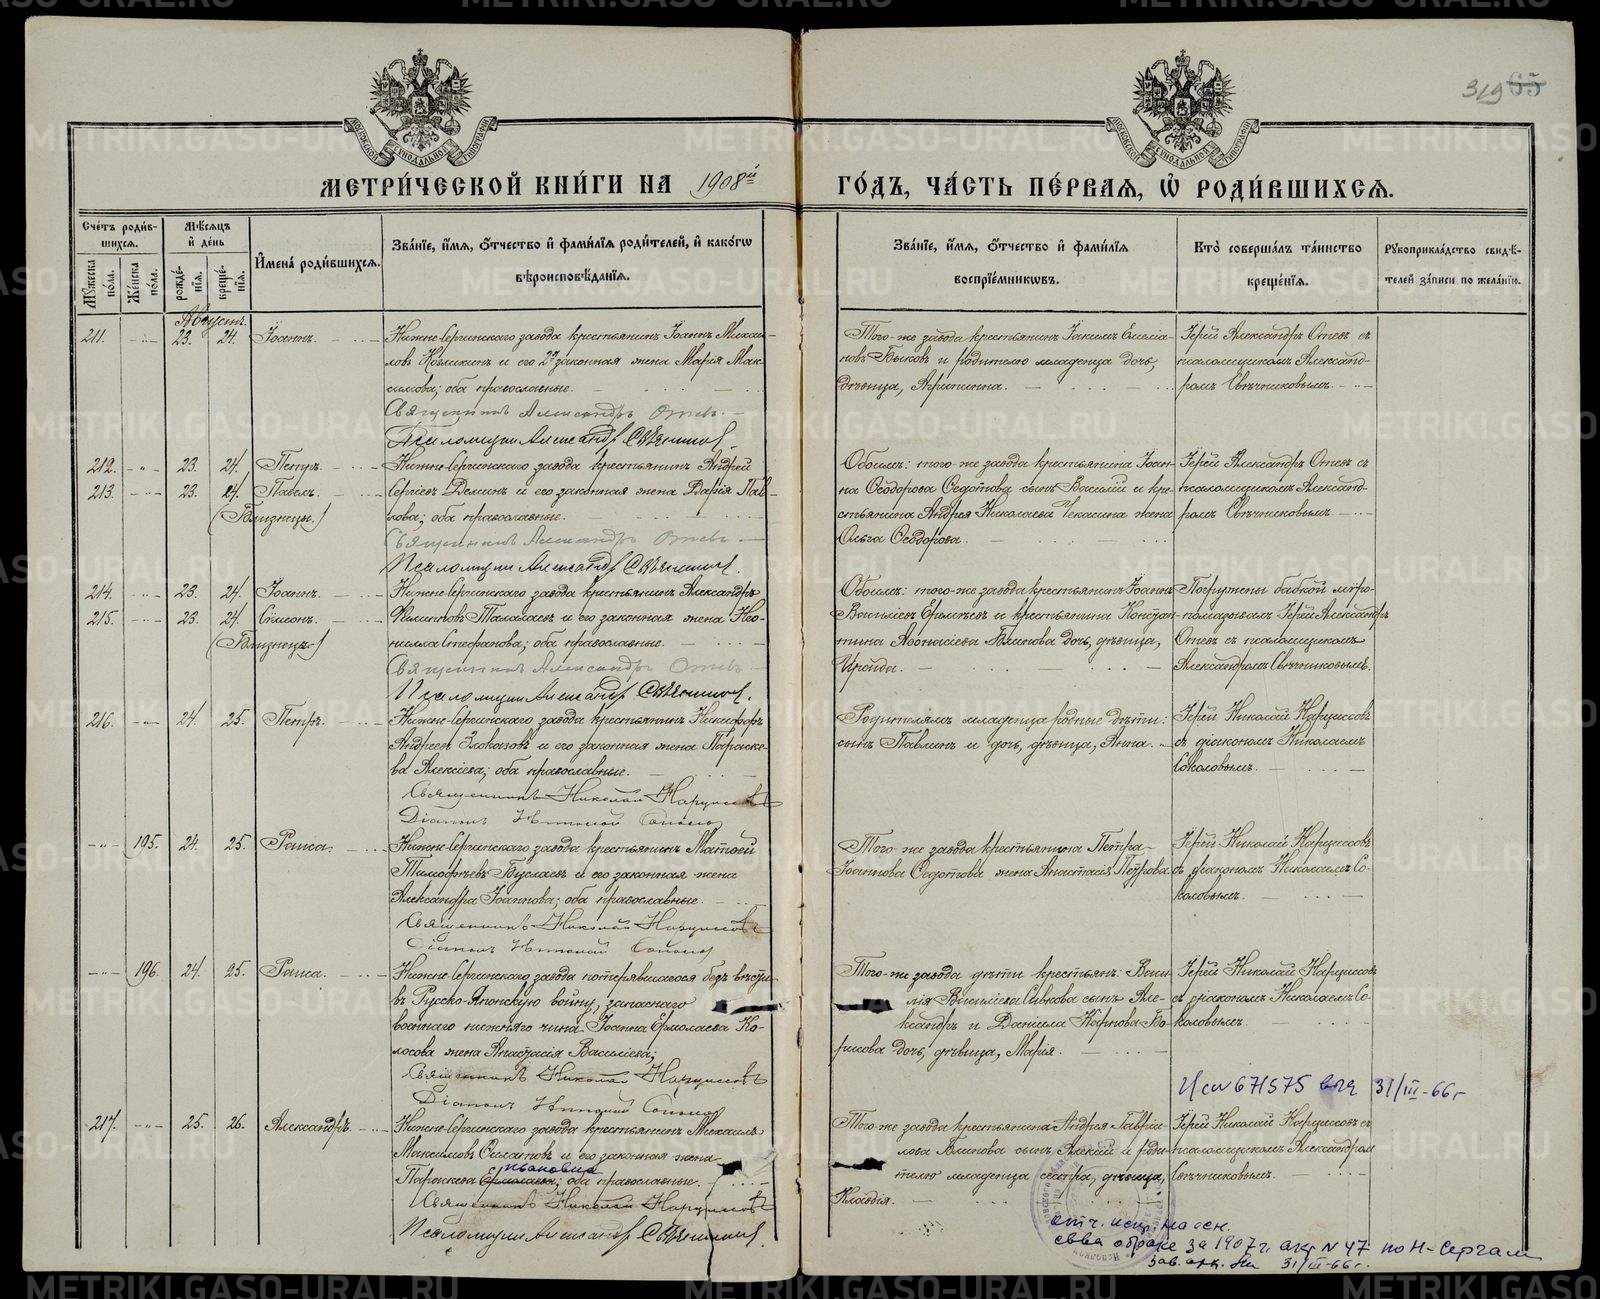 319 65
МЕТРИ́ЧЕСКОЙ КНИ́ГИ НА 1908й
ГО́ДЪ, ЧА́СТЬ ПЕ́РВАЯ, Ѡ҆ РОДИ́ВШИХСЯ.
Сче́тъ роди́вшихся.
Му́жеска по́ла.
Же́нска по́ла.
Мѣ́сяцъ и҆ де́нь
рожде́нїя.
креще́нїя.
И҆мена̀ роди́вшихся.
Зва́нїе, и҆́мя, ѻ҆́тчество и҆ фами́лїя роди́телей, и҆ како́гѡ
вѣроисповѣ́данїя.
Зва́нїе, и҆́мя, ѻ҆́тчество и҆ фами́лїя
воспрїе́мникѡвъ.
Кто̀ соверша́лъ та́инство
креще́нїя.
Рꙋкоприкла́дство свидѣ́-
телей за́писи по жела́нїю.
Августъ.
211. 23. 24. Іоаннъ.
Нижне-Сергинскаго завода крестьянинъ Іоаннъ Михаи-
ловъ и его 2я законная жена Марія Мак-
симова; оба православные.
Священникъ Александръ Отевъ.
Псаломщикъ Александръ Свѣчниковъ.
Того-же завода крестьянинъ Іакимъ Емелiа-
новъ Быковъ и родителю младенца дочь,
дѣвица, Агриппина.
Іерей Александръ Отевъ съ
псаломщикомъ Александ-
ромъ Свѣчниковымъ.
212. 23. 24. Петръ.
213. 23. 24. Павелъ.
(Близнецы.)
Нижне-Сергинскаго завода крестьянинъ Андрей
Сергѣевъ Деминъ и его законная жена Дарія Пав-
лова; оба православные.
Священникъ Александръ Отевъ
Псаломщикъ Александръ Свѣчниковъ.
Обоимъ: того-же завода крестьянина Іоан-
на Ѳеодорова Ѳедотова сынъ Василій и кре-
стьянина Андрея Николаева Чекасина жена
Ольга Ѳеодорова.
Іерей Александръ Отевъ съ
псаломщикомъ Александ-
ромъ Свѣчниковымъ.
214. 23. 24. Іоаннъ.
215. 23. 24. Сѵмеонъ.
(Близнецы.)
Нижне-Сергинскаго завода крестьянинъ Александръ
Филипповъ Талалаевъ и его законная жена Нео-
нилла Стефанова; оба православные.
Священникъ Александръ Отевъ
Псаломщикъ Александръ Свѣчниковъ.
Обоимъ: того-же завода крестьянинъ Іоаннъ
Василіевъ и крестьянина Констан-
тина Аѳонасіева Блинова дочь, дѣвица,
Ираида.
Погружены бабкой, мѵро-
помазывалъ Іерей Александръ
Отевъ съ псаломщикомъ
Александромъ Свѣчниковымъ.
216. 24. 25. Петръ.
Нижне-Сергинскаго завода крестьянинъ Никифоръ
Андреевъ Злоказовъ и его законная жена Параске-
ва Алексіева; оба православные.
Священникъ Николай Нарциссовъ
Діаконъ Николай Соколовъ
Родителямъ младенца родные дѣти:
сынъ Павлинъ и дочь, дѣвица, Анна.
Іерей Николай Нарциссовъ
съ діакономъ Николаемъ
Соколовымъ.
195. 24. 25. Раиса.
Нижне-Сергинскаго завода крестьянинъ Матѳей
Тимофѣевъ Буслаевъ и его законная жена
Александра Іоаннова; оба православные.
Священникъ Николай Нарциссовъ
Діаконъ Николай Соколовъ
Того-же завода крестьянина Петра
Іоаннова Ѳедотова жена Анастасія Петрова
Іерей Николай Нарциссовъ
съ діакономъ Николаемъ Со-
коловымъ.
196. 24. 25. Раиса.
Нижне-Сергинскаго завода потерявшагося безъ вѣсти
въ Русско-Японскую войну, запаснаго
военнаго нижняго чина Іоанна Ермолаева Ко-
лосова жена Анастасія Василіева;
Священникъ Николай Нарциссовъ
Діаконъ Николай Соколовъ
Того-же завода дѣти крестьянъ: Васи-
лія Василіева Сивкова сынъ Але-
ксандръ и Даніила Карпова Бо-
рисова дочь, дѣвица, Марія.
Іерей Николай Нарциссовъ
съ діакономъ Николаемъ Со-
коловымъ.
671575 31/III-66г
217. 25. 26. Александръ.
Нижне-Сергинскаго завода крестьянинъ Михаилъ
Максимовъ Силантовъ и его законная жена
Ивановна
Параскева Ермолаева; оба православные.
Священникъ Николай Нарциссовъ
Псаломщикъ Александръ Свѣчниковъ.
Того-же завода крестьянина Андрея Гаврiи-
лова Блинова сынъ Алексій и роди-
телю младенца сестра, дѣвица,
Клавдія.
Іерей Николай Нарциссовъ съ
псаломщикомъ Александромъ
Свѣчниковымъ.
отч. испр. на осн.
св-ва о браке за 1907г. акт N 47 по Н-Сергам
зав. арх. 31/III-66г.
METRIKI.GASO-URAL.RU